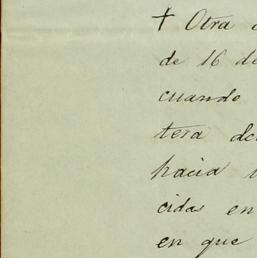 † Otra
de 16 de
cuando
tera
hacia
cidas en
en que